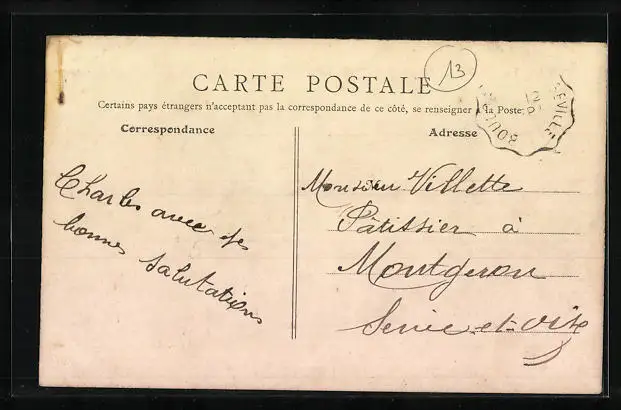 13
CARTE POSTALE
Certains pays étrangers n'acceptant pas la correspondance de ce côté, se renseigner à la Poste
Correspondance
Adresse
Charles avec ses
bonnes salutations
Monsieur Villette
Pâtissier à
Montgeron
Seine-et-Oise